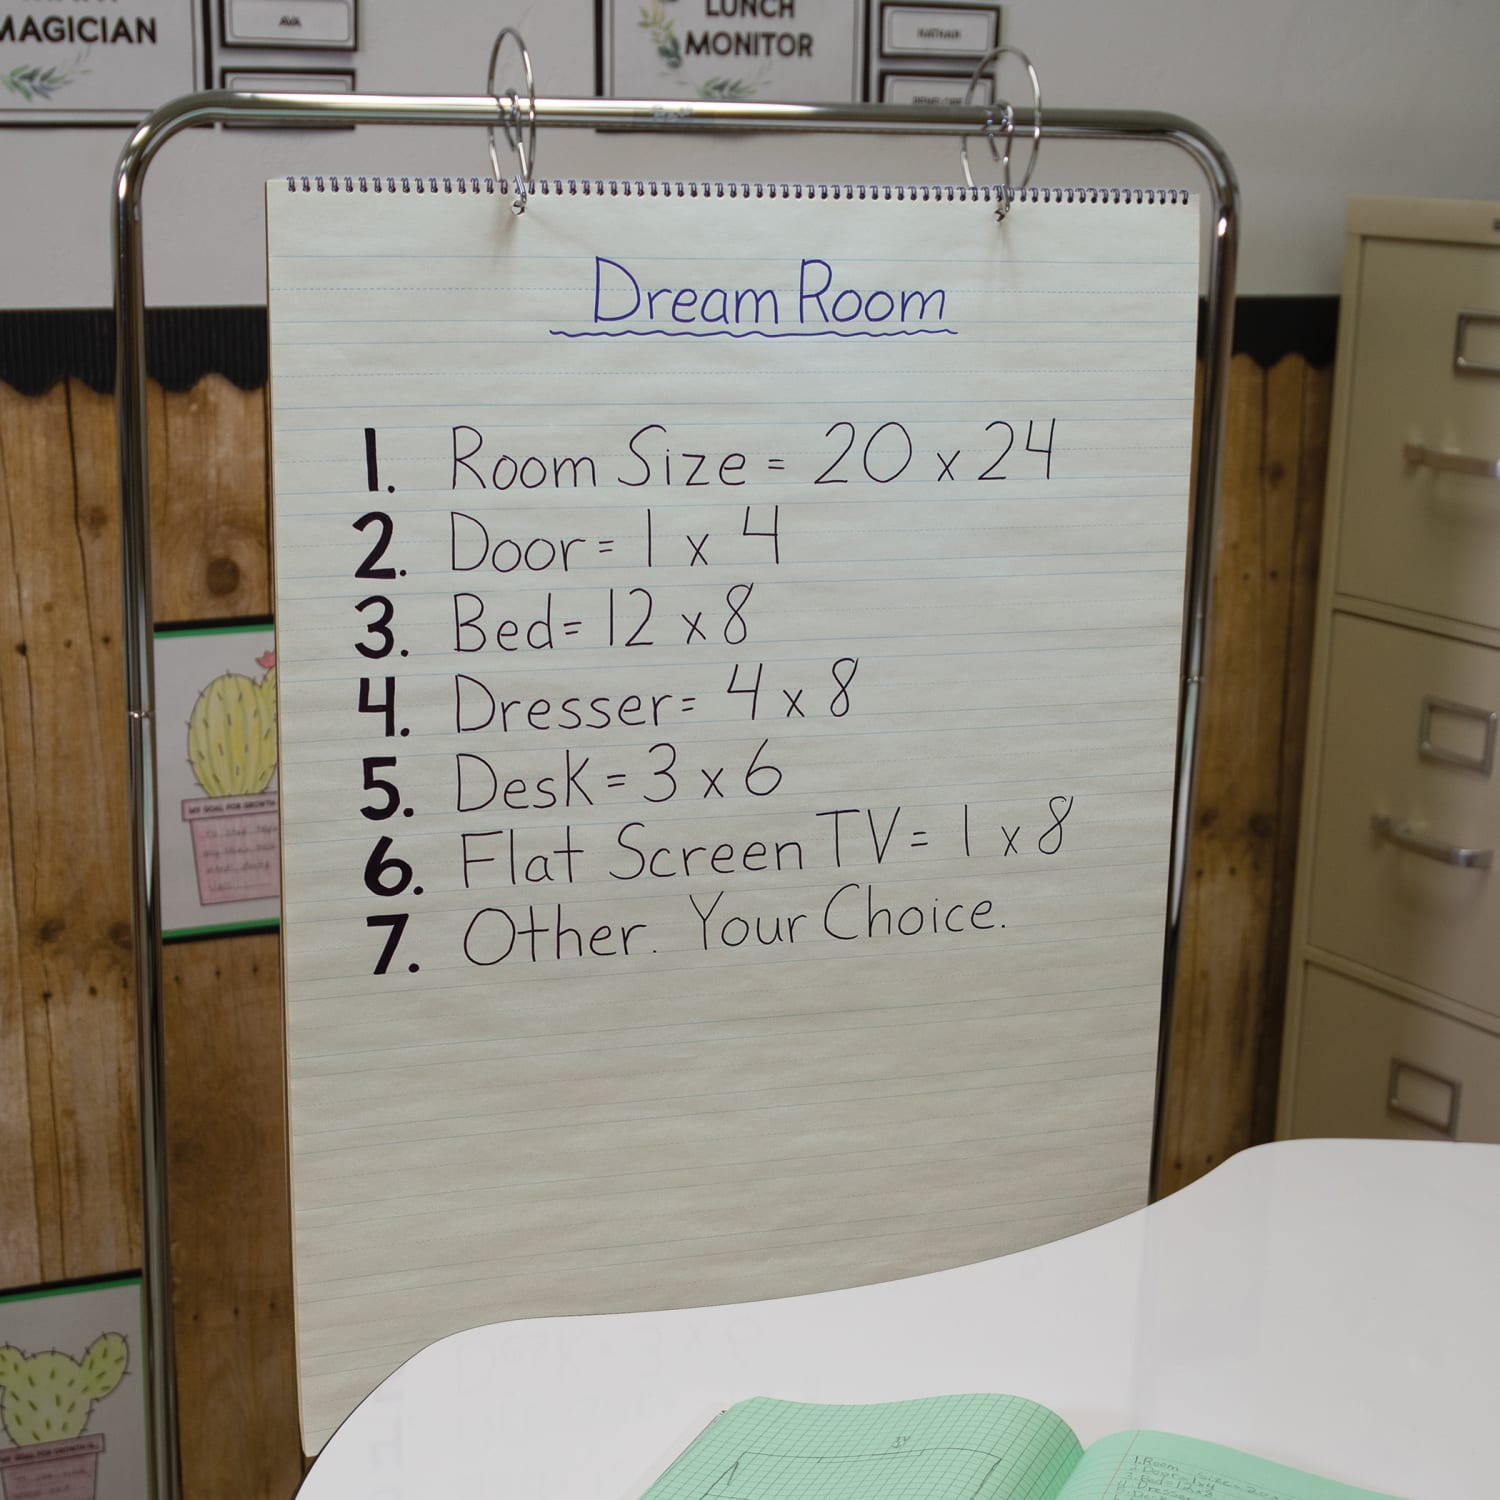 MAGICIAN
AVA
LUNCH
MONITOR
NATHAN
Dream Room
1. Room Size = 20 x 24
2. Door = 1 x 4
3. Bed = 12 x 8
4. Dresser = 4 x 8
5. Desk = 3 x 6
6. Flat Screen TV = 1 x 8
7. Other. Your Choice.
MY GOAL FOR GROWTH
MY GOAL FOR GROWTH IS...
1. Room Size = 20 x
2. Door = 1x4
3. Bed = 12x8
4. Dresser